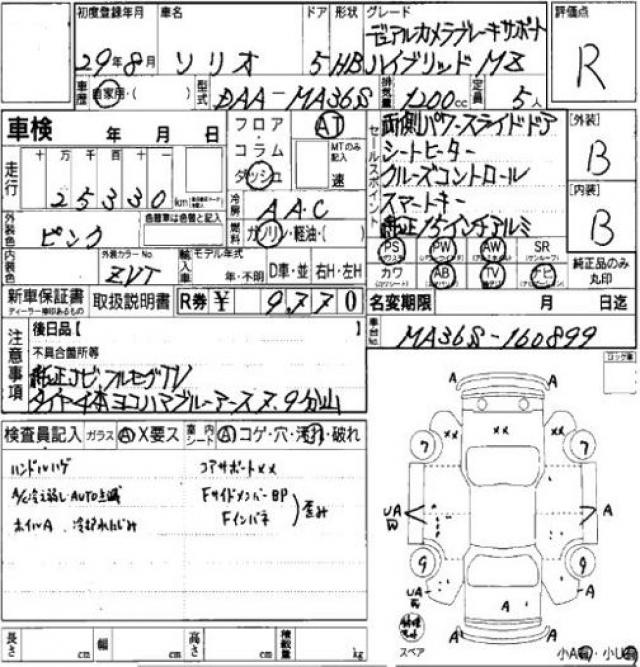 初度登録年月 車名 ドア 形状 グレード 評価点
29年8月 ソリオ 5 HB デュアルカメラブレーキサポート
ハイブリッド MZ
R
車歴 自家用・( ) 型式 DAA-MA36S 排気量 1200cc 定員 5人
車検 年 月 日
フロア・コラム ダッシュ AT
MTのみ記入 速
セールスポイント
両側パワースライドドア
シートヒーター
クルーズコントロール
スマートキー
純正15インチアルミ
[外装] B
[内装] B
走行 十 万 千 百 十 一
25330 km
冷房 AAC
燃料 ガソリン・軽油・( )
外装色 ピンク 色替車は色替と記入
内装色 外装カラーNo. ZVT
輸入車 モデル年式 年・不明 D車・並 右H・左H
PS PW AW SR
カワ AB TV ナビ
純正品のみ丸印
新車保証書 取扱説明書 R券 ¥ 9,770
ディーラー捺印あるもの
名変期限 月 日迄
車台No. MA36S-160899
注意事項
後日品【 】
不具合箇所等
純正ナビ、フルセグTV
タイヤ4本ヨコハマブルーアース 7.9分山
ロック車
検査員記入 ガラス A X要ス 室内シート A コゲ・穴・汚れ・破れ
ハンドルハゲ
コアサポートXX
FサイドメンバーBP
Fインパネ
歪み
ホイルA
A
A A
XX XX
7 7
UA W A
9 9
UA A
A
スペア
A A
小A ・小U
長さ cm 幅 cm 高さ cm 積載量 kg